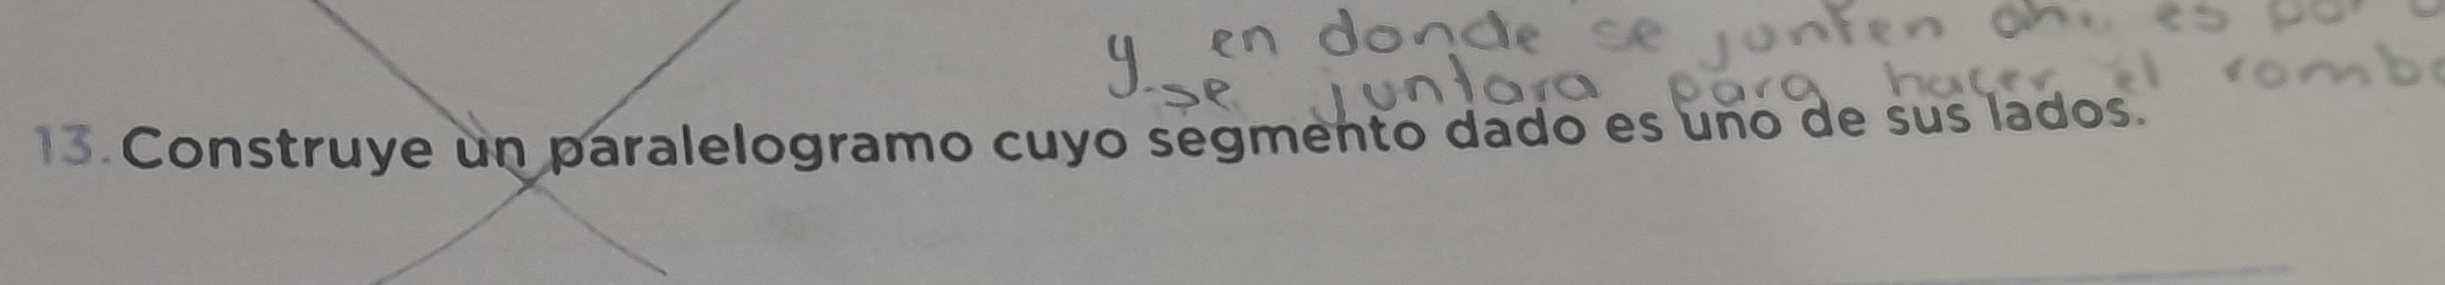 y en donde se junten ahi es por
se juntara para hacer el rombo
13. Construye un paralelogramo cuyo segmento dado es uno de sus lados.